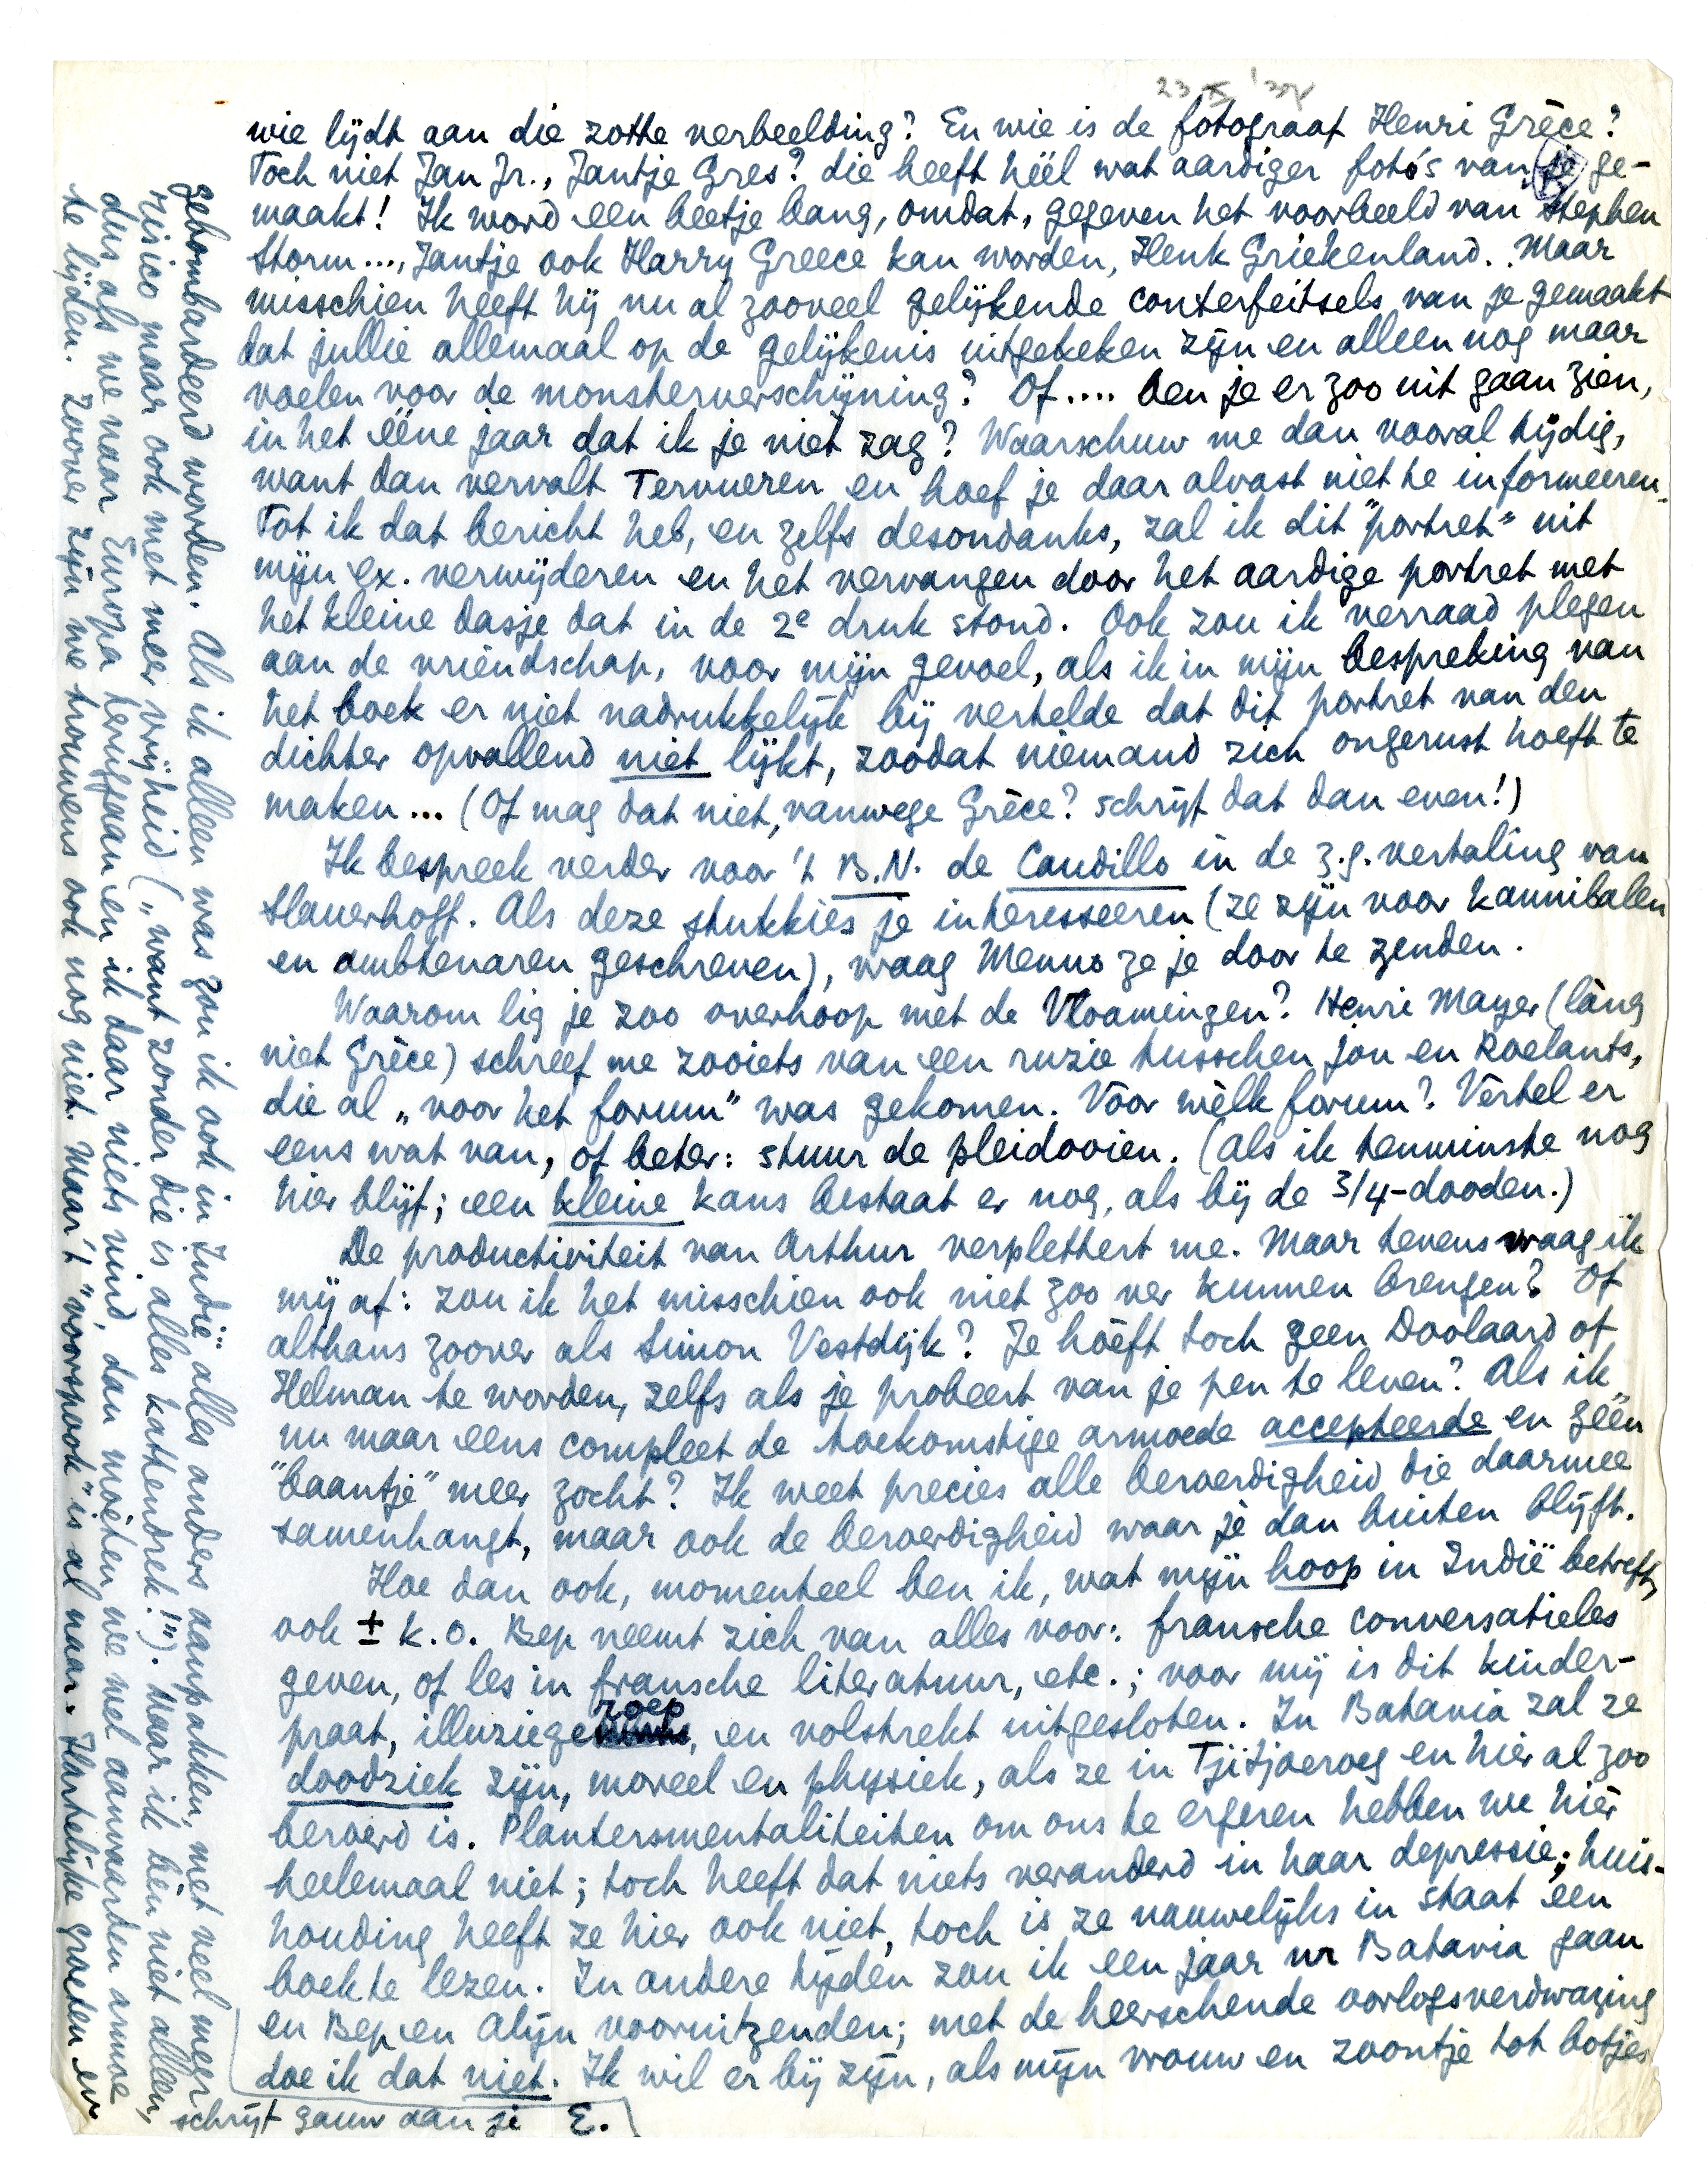 23 X '37
wie lijdt aan die zotte verbeelding? En wie is de fotograaf Henri Grèce?
Toch niet Jan Jr., Jantje Gres? die heeft héél wat aardiger foto's van je ge-
maakt! Ik word een beetje bang, omdat, gegeven het voorbeeld van Stephen
Storm..., Jantje ook Harry Greece kan worden, Henk Griekenland. Maar
misschien heeft hij nu al zooveel gelijkende conterfeitsels van je gemaakt
dat jullie allemaal op de gelijkenis uitgekeken zijn en alleen nog maar
voelen voor de monsterverschijning? Of.... ben je er zoo uit gaan zien,
in het ééne jaar dat ik je niet zag? Waarschuw me dan vooral tijdig,
want dan vervalt Tervueren en hoef je daar alvast niet te informeeren.
Tot ik dat bericht heb, en zelfs desondanks, zal ik dit "portret" uit
mijn ex. verwijderen en het vervangen door het aardige portret met
het kleine dasje dat in de 2e druk stond. Ook zou ik verraad plegen
aan de vriendschap, voor mijn gevoel, als ik in mijn bespreking van
het boek er niet nadrukkelijk bij vertelde dat dit portret van den
dichter opvallend niet lijkt, zoodat niemand zich ongerust hoeft te
maken... (Of mag dat niet, vanwege Grèce? schrijf dat dan even!)
Ik bespreek verder voor 't B.N. de Caudillo in de z.g. vertaling van
Slauerhoff. Als deze stukkies je interesseeren (ze zijn voor kannibalen
en ambtenaren geschreven), vraag Menno ze je door te zenden.
Waarom lig je zoo overhoop met de Vlaamingen? Henri Mayer (làng
niet Grèce) schreef me zooiets van een ruzie tusschen jou en Roelants,
die al „voor het forum" was gekomen. Vóór wèlk forum? Vertel er
eens wat van, of beter: stuur de pleidooien. (Als ik tenminste nog
hier blijf; een kleine kans bestaat er nog, als bij de 3/4-dooden.)
De productiviteit van Arthur verplettert me. Maar tevens vraag ik
mij af: zou ik het misschien ook niet zoo ver kunnen brengen? Of
althans zoover als Simon Vestdijk? Je hóéft toch geen Doolaard of
Helman te worden, zelfs als je probeert van je pen te leven? Als ik
nu maar eens compleet de toekomstige armoede accepteerde en géén
"baantje" meer zocht? Ik weet precies alle beroerdigheid die daarmee
samenhangt, maar ook de beroerdigheid waar je dan buiten blijft.
Hoe dan ook, momenteel ben ik, wat mijn hoop in Indië betreft,
ook ± k.o. Bep neemt zich van alles voor: fransche conversatieles
geven, of les in fransche literatuur, etc.; voor mij is dit kinder-
praat, illuziegezoep, en volstrekt uitgesloten. In Batavia zal ze
doodziek zijn, moreel en physiek, als ze in Tjitjoeroeg en hier al zoo
beroerd is. Plantersmentaliteiten om ons te ergeren hebben we hiér
heelemaal niet; toch heeft dat niets veranderd in haar depressie; huis-
houding heeft ze hier ook niet, toch is ze nauwelijks in staat een
boek te lezen. In andere tijden zou ik een jaar nr Batavia gaan
en Bep en Alijn vooruitzenden; met de heerschende oorlogsverdwazing
doe ik dat niet. Ik wil er bij zijn, als mijn vrouw en zoontje tot botjes
gebombardeerd worden. Als ik alleen was zou ik ook in Indië alles anders aanpakken, met veel meer
risico maar ook met meer vrijheid („want zonder die is alles kattendrek!"). Maar ik bén niet alleen,
dus als we naar Europa teruggaan en ik daar niets vind, dan moeten we wel aanvaarden armoe
te lijden. Zoover zijn we trouwens ook nog niet. Maar 't "voorspook" is al naar. Hartelijke groeten en
schrijf gauw aan je E.